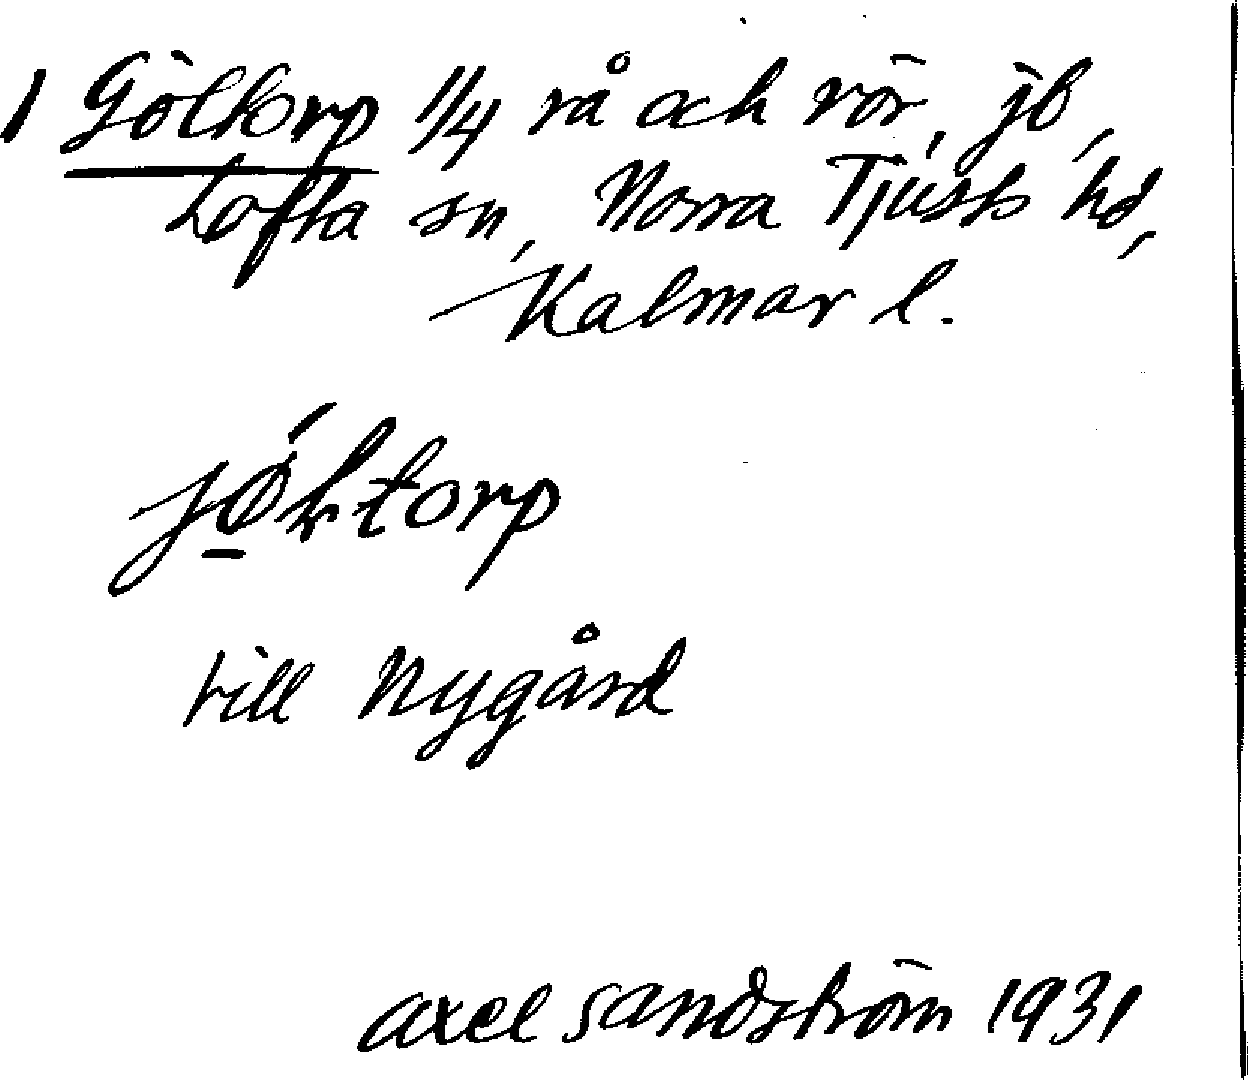 1 Göltorp 1/4 rå och rör, jb,
Lofta sn, Norra Tjusts hd,
Kalmar l.
till Nygård
axel Sandström 1931